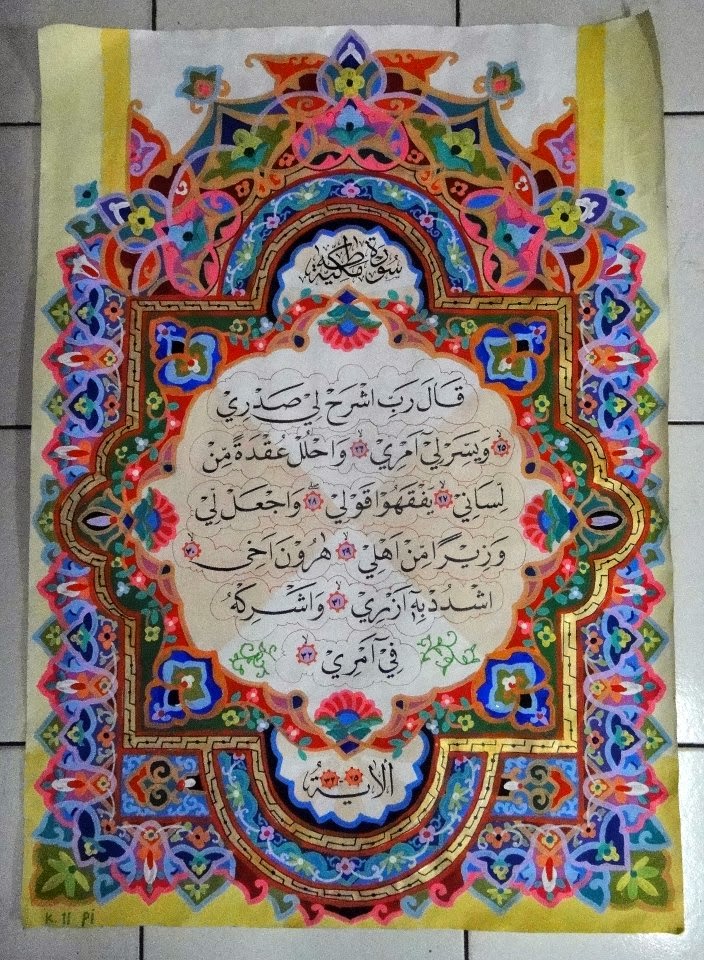 سُورَة طه مَكِّيَّة
قَالَ رَبِّ اشْرَحْ لِي صَدْرِي
٢٥ وَيَسِّرْ لِي أَمْرِي ٢٦ وَاحْلُلْ عُقْدَةً مِنْ
لِسَانِي ٢٧ يَفْقَهُوا قَوْلِي ٢٨ وَاجْعَلْ لِي
وَزِيرًا مِنْ أَهْلِي ٢٩ هٰرُونَ أَخِي ٣٠
اشْدُدْ بِهِ أَزْرِي ٣١ وَأَشْرِكْهُ
فِي أَمْرِي ٣٢
الآيَةُ ٢٥-٣٢
K. 11 Pi